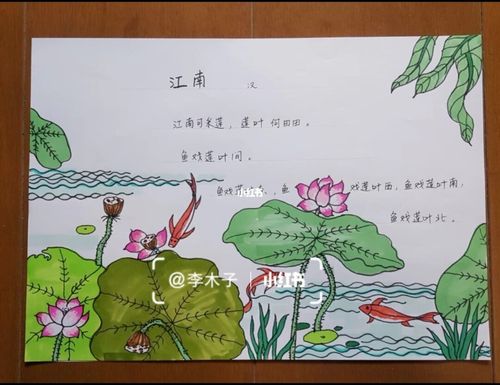 江南 汉
江南可采莲，莲叶何田田。
鱼戏莲叶间。
鱼戏莲 ，鱼 戏莲叶西，鱼戏莲叶南，
小红书
鱼戏莲叶北。
@李木子 | 小红书